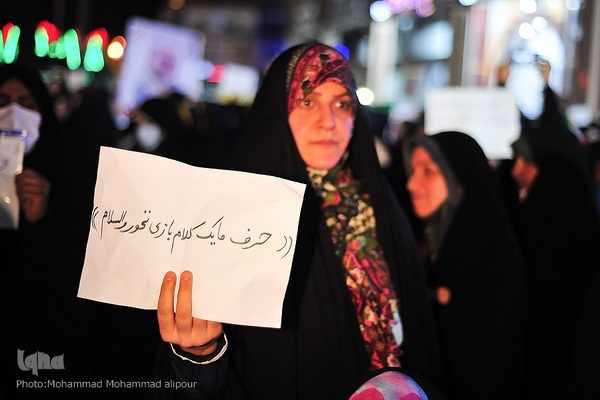 (( حرف ما یک کلام بازی نخور والسلام ))
iqna
Photo:Mohammad Mohammad alipour